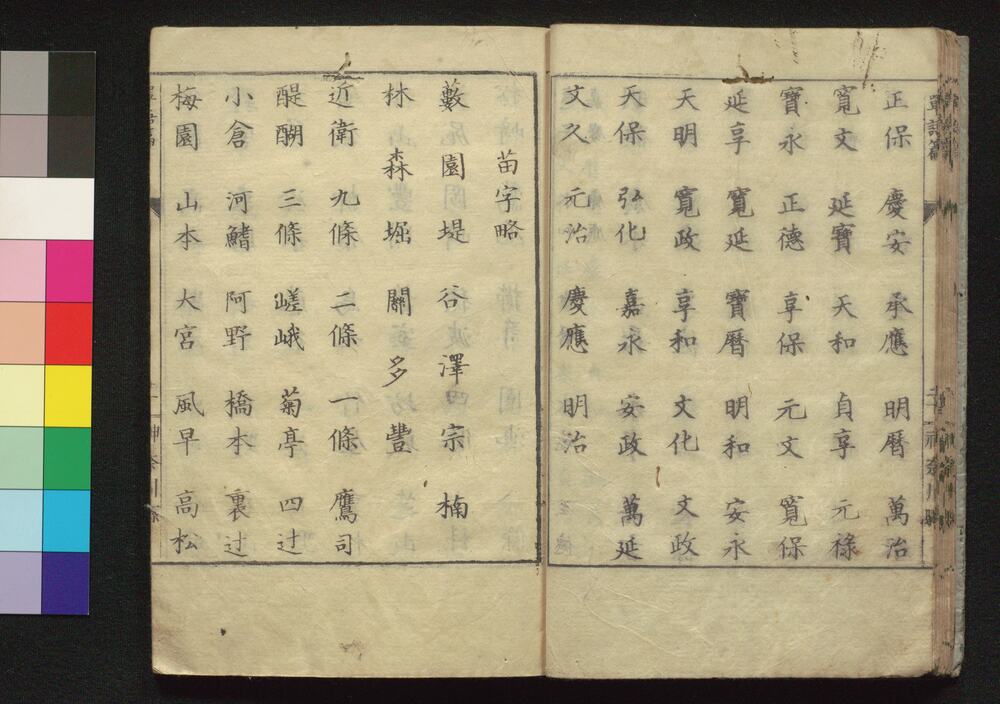 單語篇
正保 慶安 承應 明曆 萬治
寬文 延寶 天和 貞享 元祿
寶永 正德 享保 元文 寬保
延享 寬延 寶曆 明和 安永
天明 寬政 享和 文化 文政
天保 弘化 嘉永 安政 萬延
文久 元治 慶應 明治
苗字略
藪 園 堤 谷 澤 四 宗 楠
林 森 堀 關 多 豐
近衛 九條 二條 一條 鷹司
醍醐 三條 嵯峨 菊亭 四辻
小倉 河鰭 阿野 橋本 裏辻
梅園 山本 大宮 風早 高松